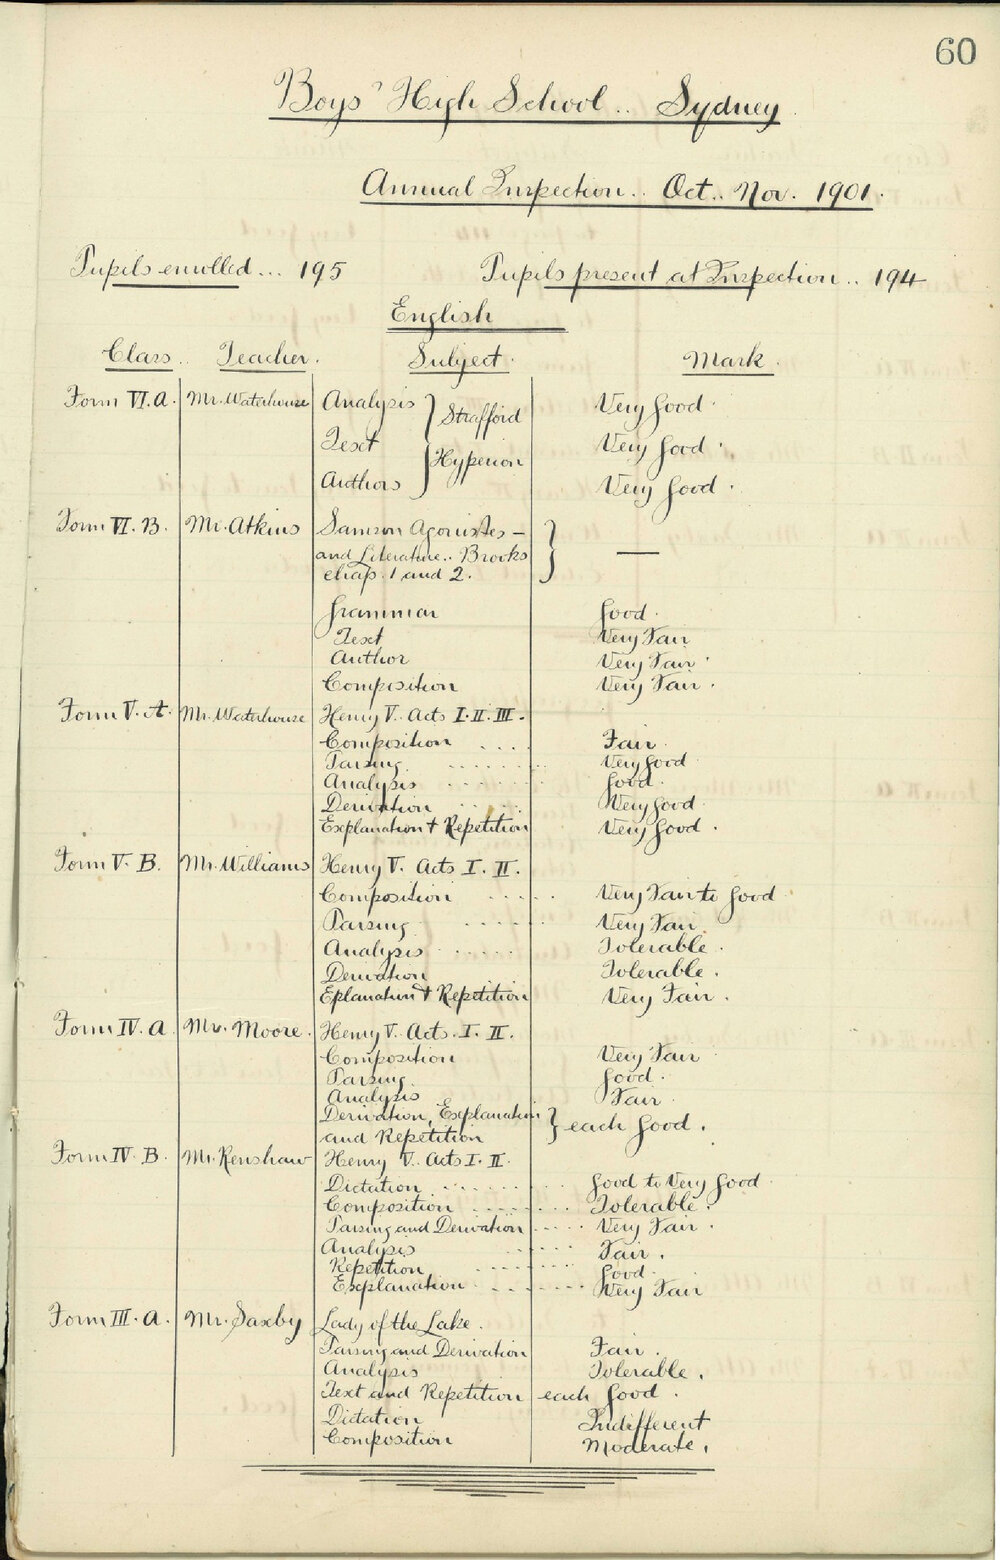 60
Boys' High School .. Sydney
Annual Inspection .. Oct.. Nov. 1901.
Pupils enrolled ... 195 Pupils present at Inspection .. 194
English
Class .. Teacher. Subject. Mark.
Form VI. A. Mr. Waterhouse Analysis } Strafford Very Good.
Text Very Good.
Hyperion
Authors Very Good.
Form VI. B. Mr. Atkins Samson Agonistes —
and Literature .. Brooks } —
chap. 1 and 2.
Grammar Good.
Text Very Fair
Author Very Fair.
Composition Very Fair.
Form V. A. Mr. Waterhouse Henry V. Acts I. II. III.
Composition .... Fair.
Parsing. ........ Very Good
Analysis ........ Good.
Derivation ..... Very Good.
Explanation & Repetition Very Good.
Form V. B. Mr. Williams Henry V. Acts I. II.
Composition ..... Very Fair to Good
Parsing. ........ Very Fair.
Analysis ...... Tolerable.
Derivation Tolerable.
Eplanation & Repetition Very Fair.
Form IV. A. Mr. Moore. Henry V. Acts. I. II.
Composition Very Fair
Parsing. Good.
Analysis Fair.
Derivation, Explanation } each Good.
and Repetition
Form IV. B. Mr. Renshaw Henry V. Acts I. II.
Dictation ......... Good to Very Good
Composition ....... Tolerable.
Parsing and Derivation .... Very Fair.
Analysis ..... Fair.
Repetition ........ Good.
Explanation ........ Very Fair
Form III. A. Mr. Saxby Lady of the Lake.
Parsing and Derivation Fair.
Analysis Tolerable.
Text and Repetition each Good.
Dictation Indifferent
Composition Moderate.